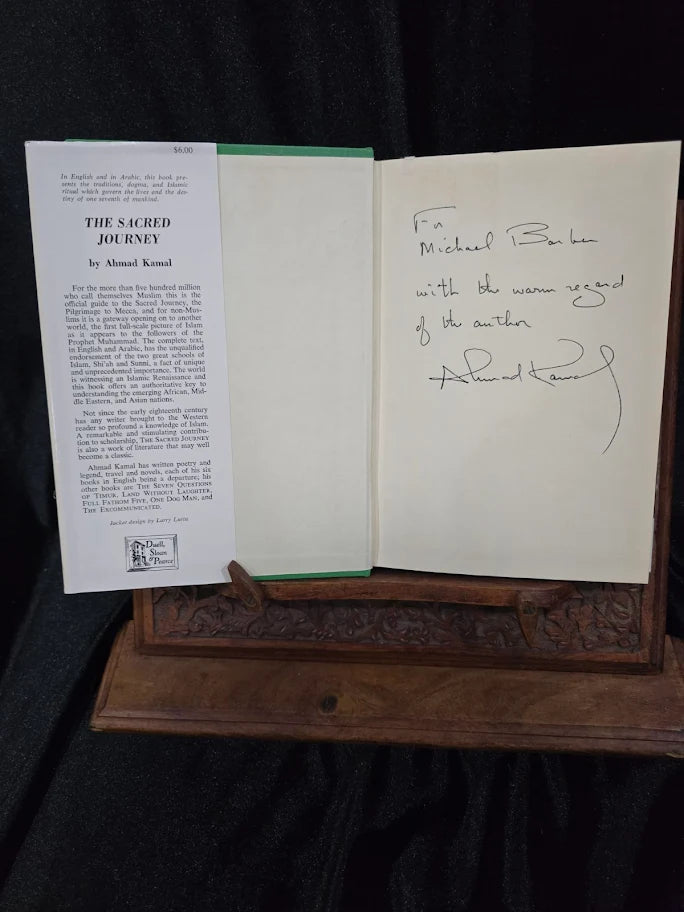 $6.00
In English and in Arabic, this book pre-
sents the traditions, dogma, and Islamic
ritual which govern the lives and the des-
tiny of one seventh of mankind.
THE SACRED
JOURNEY
by Ahmad Kamal
For the more than five hundred million
who call themselves Muslim this is the
official guide to the Sacred Journey, the
Pilgrimage to Mecca, and for non-Mus-
lims it is a gateway opening on to another
world, the first full-scale picture of Islam
as it appears to the followers of the
Prophet Muhammad. The complete text,
in English and Arabic, has the unqualified
endorsement of the two great schools of
Islam, Shi'ah and Sunni, a fact of unique
and unprecedented importance. The world
is witnessing an Islamic Renaissance and
this book offers an authoritative key to
understanding the emerging African, Mid-
dle Eastern, and Asian nations.
Not since the early eighteenth century
has any writer brought to the Western
reader so profound a knowledge of Islam.
A remarkable and stimulating contribu-
tion to scholarship, THE SACRED JOURNEY
is also a work of literature that may well
become a classic.
Ahmad Kamal has written poetry and
legend, travel and novels, each of his six
books in English being a departure; his
other books are THE SEVEN QUESTIONS
OF TIMUR, LAND WITHOUT LAUGHTER,
FULL FATHOM FIVE, ONE DOG MAN, and
THE EXCOMMUNICATED.
Jacket design by Larry Lurin
Duell,
Sloan
& Pearce
For
Michael
with the warm regard
of the author
Ahmad Kamal